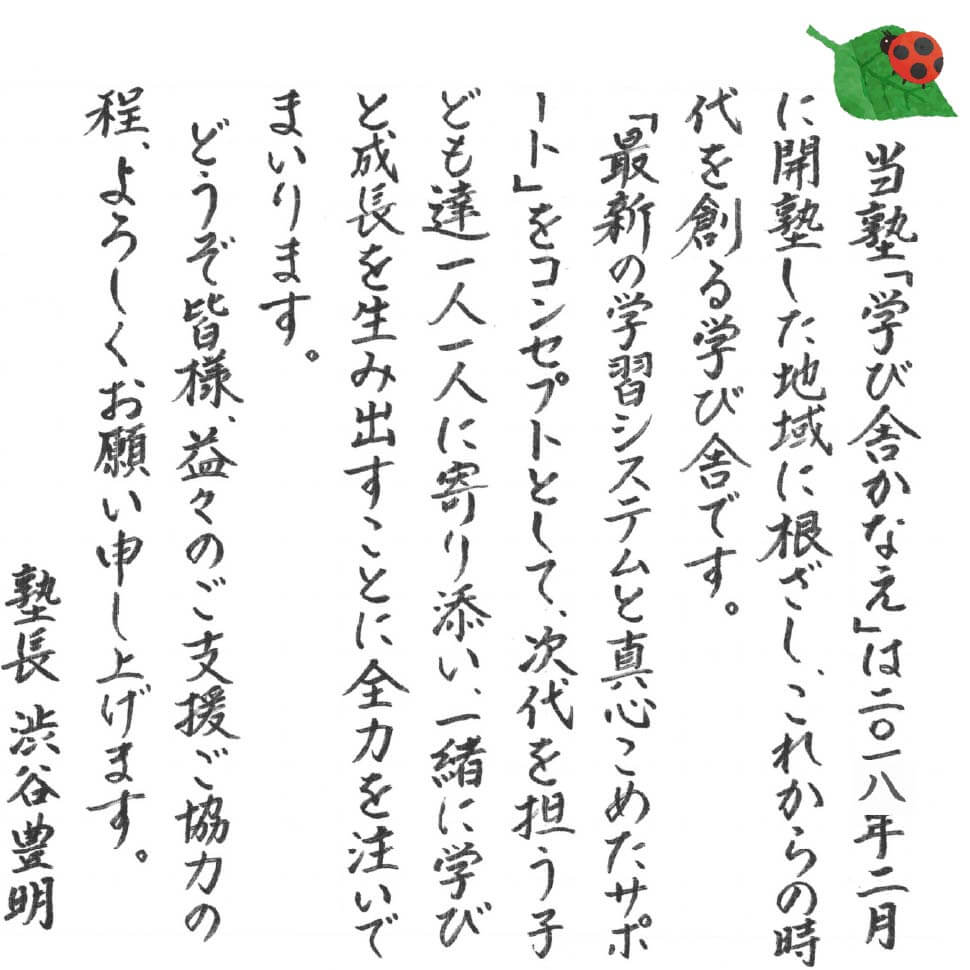 当塾「学び舎かなえ」は二〇一八年二月
に開塾した地域に根ざし、これからの時
代を創る学び舎です。
「最新の学習システムと真心こめたサポ
ート」をコンセプトとして、次代を担う子
ども達一人一人に寄り添い、一緒に学び
と成長を生み出すことに全力を注いで
まいります。
どうぞ皆様、益々のご支援ご協力の
程、よろしくお願い申し上げます。
塾長 渋谷豊明